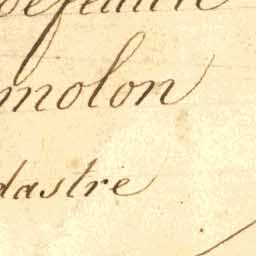 molon
dastre